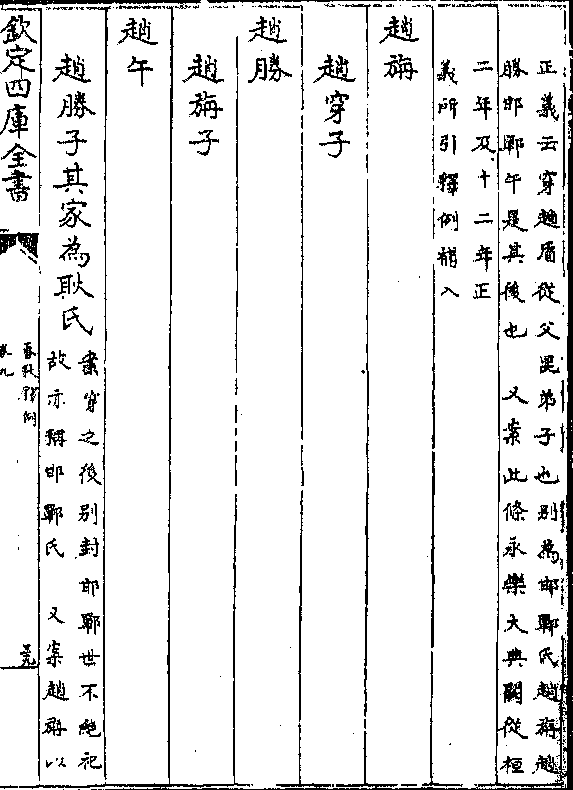 正義云穿趙盾從父昆弟子也别為邯鄲氏趙旃趙
勝邯鄲午是其後也　又案此條永樂大典闕從桓
二年及十二年正
義所引釋例補入
趙旃
趙穿子
趙勝
趙旃子
趙午
趙勝子其家為耿氏
案穿之後别封邯鄲世不絶祀
故亦稱邯鄲氏　又案趙旃以
欽定四庫全書
春秋釋例
卷九